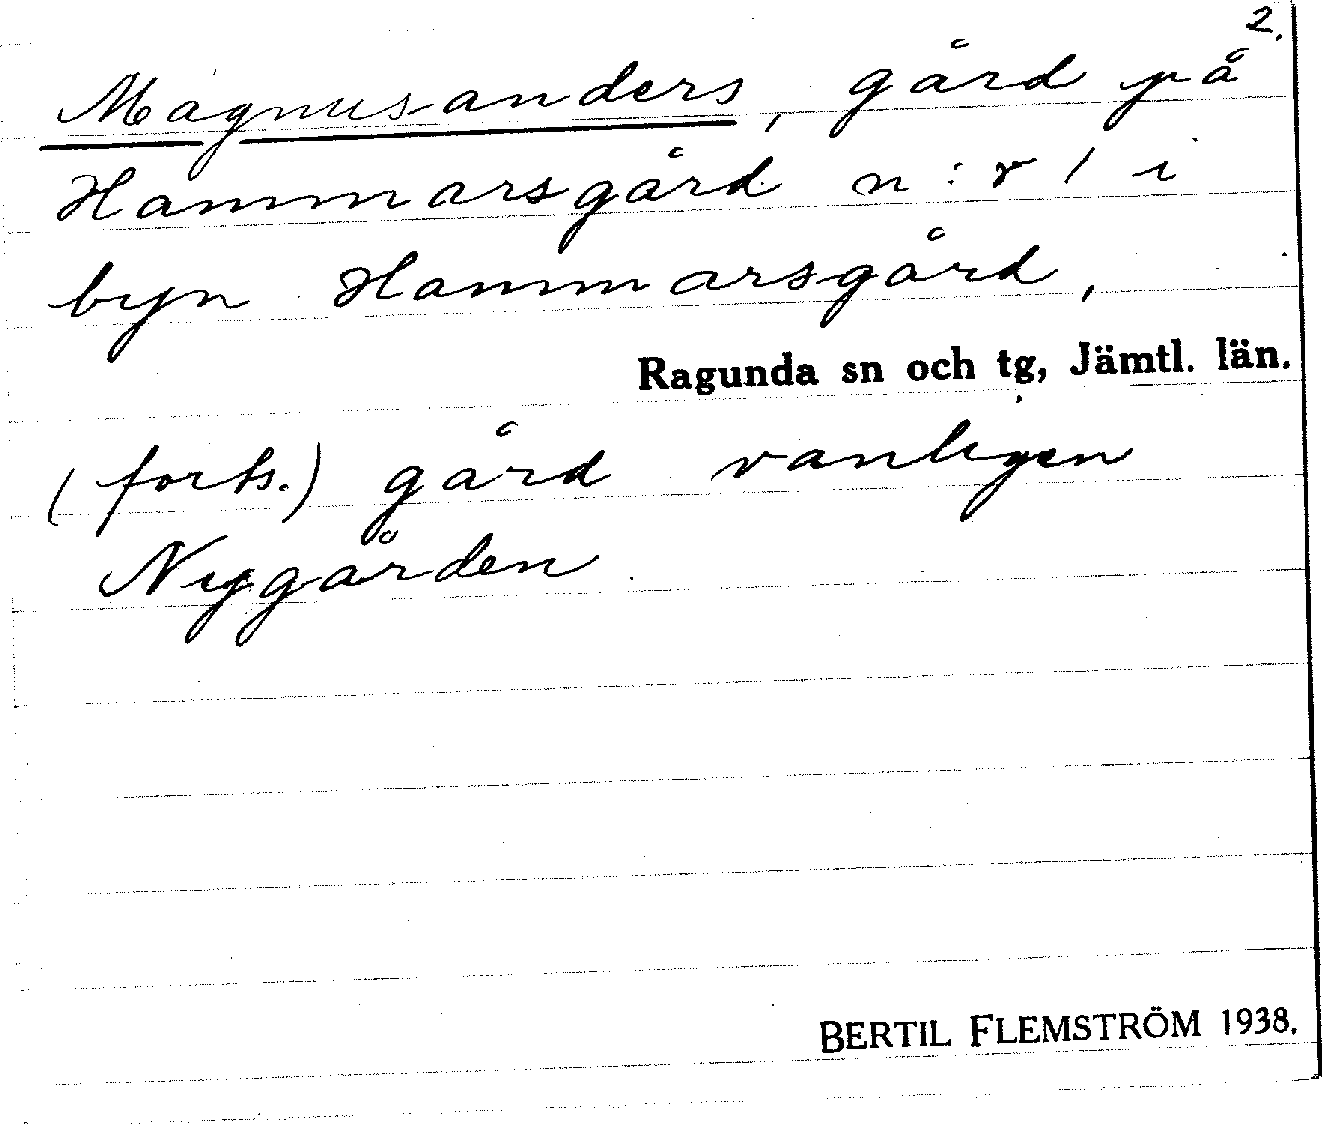 2.
Magnusanders, gård på
Hammarsgård n:r 1 i
byn Hammarsgård,
Ragunda sn och tg, Jämtl. län.
(forts.) gård vanligen
Nygården
BERTIL FLEMSTRÖM 1938.